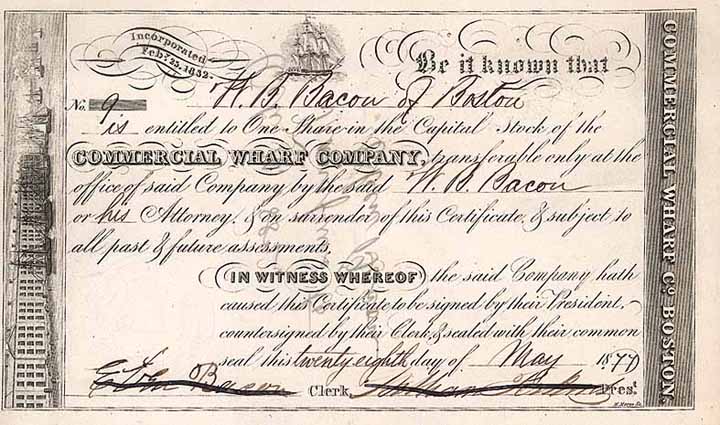 Incorporated
Feb. 23. 1832.
Be it known that
No. 9 W. B. Bacon of Boston
is entitled to One Share in the Capital Stock of the
COMMERCIAL WHARF COMPANY, transferable only at the
office of said Company by the said W. B. Bacon
or his Attorney, & on surrender of this Certificate, & subject to
all past & future assessments.
IN WITNESS WHEREOF the said Company hath
caused this Certificate to be signed by their President,
countersigned by their Clerk, & sealed with their common
seal this twenty eighth day of May 1877
Bacon Clerk. Prest.
COMMERCIAL WHARF Co. BOSTON.